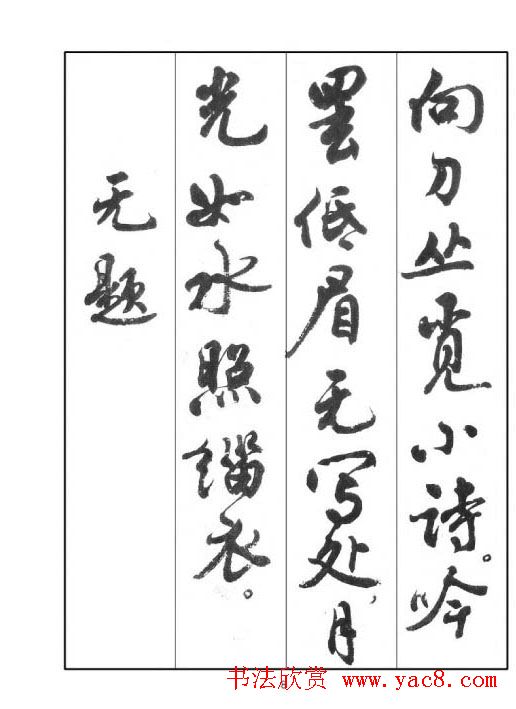 向刀丛觅小诗。吟
罢低眉无写处，月
光如水照缁衣。
无题
书法欣赏 www.yac8.com